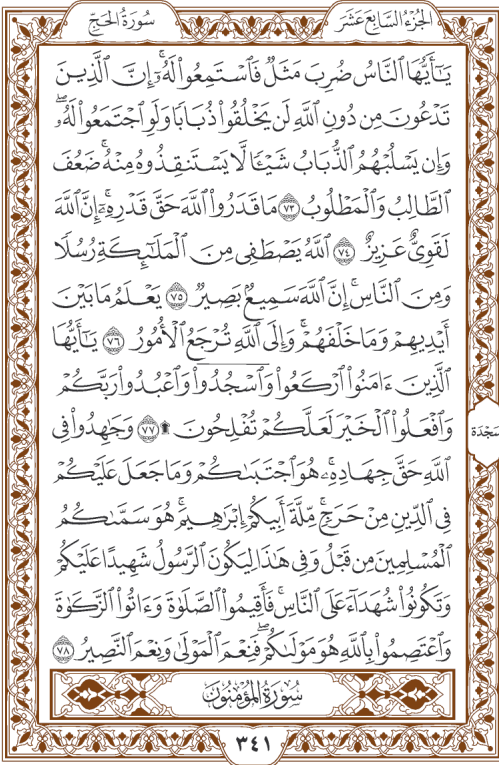 الجزء السابع عشر
سورة الحج
يَٰٓأَيُّهَا ٱلنَّاسُ ضُرِبَ مَثَلٞ فَٱسۡتَمِعُواْ لَهُۥٓۚ إِنَّ ٱلَّذِينَ
تَدۡعُونَ مِن دُونِ ٱللَّهِ لَن يَخۡلُقُواْ ذُبَابٗا وَلَوِ ٱجۡتَمَعُواْ لَهُۥۖ
وَإِن يَسۡلُبۡهُمُ ٱلذُّبَابُ شَيۡـٔٗا لَّا يَسۡتَنقِذُوهُ مِنۡهُۚ ضَعُفَ
ٱلطَّالِبُ وَٱلۡمَطۡلُوبُ ٧٣ مَا قَدَرُواْ ٱللَّهَ حَقَّ قَدۡرِهِۦٓۚ إِنَّ ٱللَّهَ
لَقَوِيٌّ عَزِيزٌ ٧٤ ٱللَّهُ يَصۡطَفِي مِنَ ٱلۡمَلَٰٓئِكَةِ رُسُلٗا
وَمِنَ ٱلنَّاسِۚ إِنَّ ٱللَّهَ سَمِيعُۢ بَصِيرٞ ٧٥ يَعۡلَمُ مَا بَيۡنَ
أَيۡدِيهِمۡ وَمَا خَلۡفَهُمۡۚ وَإِلَى ٱللَّهِ تُرۡجَعُ ٱلۡأُمُورُ ٧٦ يَٰٓأَيُّهَا
ٱلَّذِينَ ءَامَنُواْ ٱرۡكَعُواْ وَٱسۡجُدُواْۤ وَٱعۡبُدُواْ رَبَّكُمۡ
وَٱفۡعَلُواْ ٱلۡخَيۡرَ لَعَلَّكُمۡ تُفۡلِحُونَ ۩ ٧٧ وَجَٰهِدُواْ فِي
سَجْدَة
ٱللَّهِ حَقَّ جِهَادِهِۦۚ هُوَ ٱجۡتَبَىٰكُمۡ وَمَا جَعَلَ عَلَيۡكُمۡ
فِي ٱلدِّينِ مِنۡ حَرَجٖۚ مِّلَّةَ أَبِيكُمۡ إِبۡرَٰهِيمَۚ هُوَ سَمَّىٰكُمُ
ٱلۡمُسۡلِمِينَ مِن قَبۡلُ وَفِي هَٰذَا لِيَكُونَ ٱلرَّسُولُ شَهِيدًا عَلَيۡكُمۡ
وَتَكُونُواْ شُهَدَآءَ عَلَى ٱلنَّاسِۚ فَأَقِيمُواْ ٱلصَّلَوٰةَ وَءَاتُواْ ٱلزَّكَوٰةَ
وَٱعۡتَصِمُواْ بِٱللَّهِ هُوَ مَوۡلَىٰكُمۡۖ فَنِعۡمَ ٱلۡمَوۡلَىٰ وَنِعۡمَ ٱلنَّصِيرُ ٧٨
سُورَةُ المُؤۡمِنُونَ
٣٤١